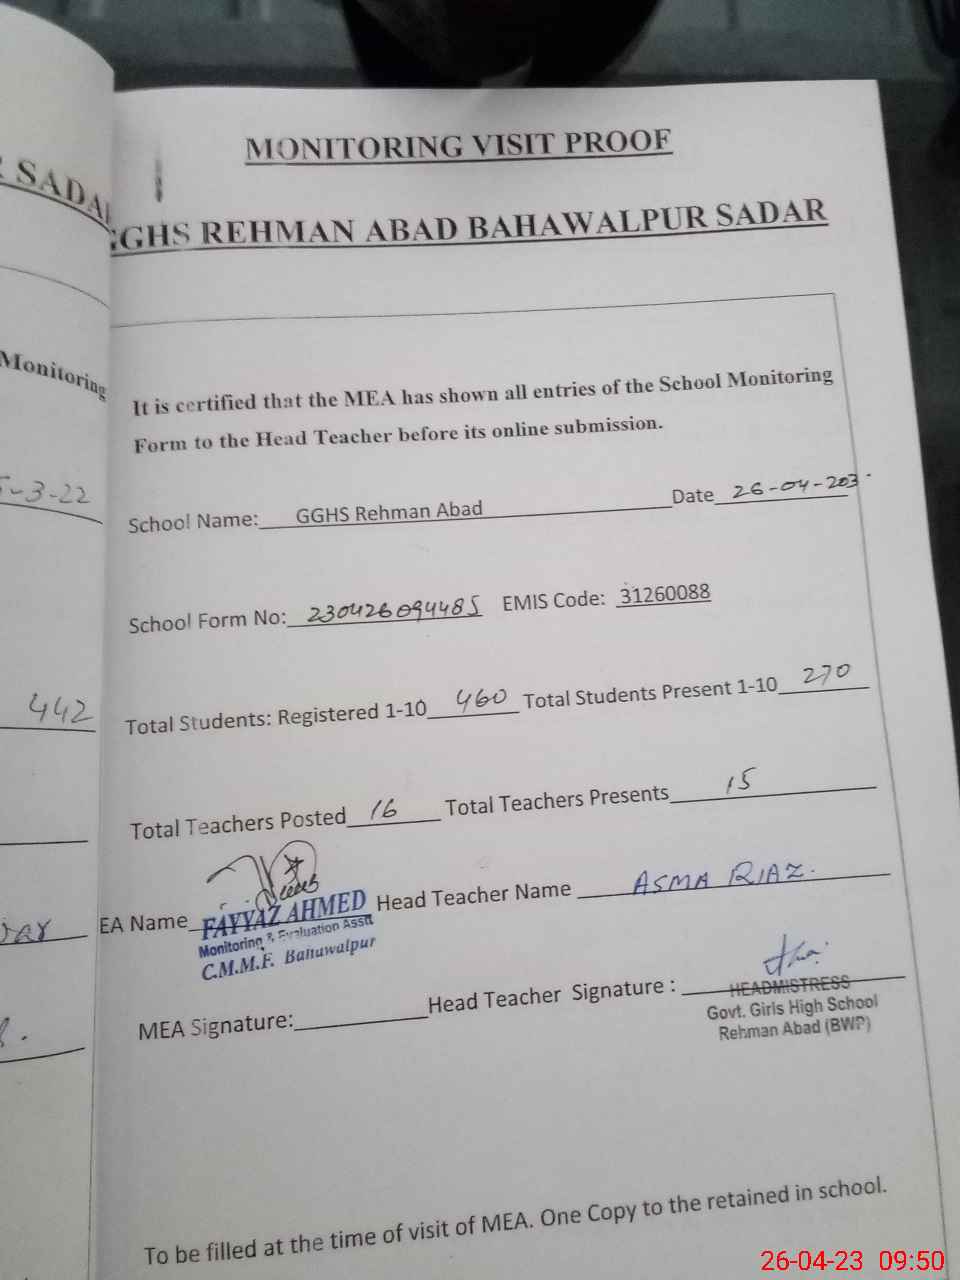 SADAR
MONITORING VISIT PROOF
GGHS REHMAN ABAD BAHAWALPUR SADAR
Monitoring
It is certified that the MEA has shown all entries of the School Monitoring
Form to the Head Teacher before its online submission.
-3-22
School Name: GGHS Rehman Abad Date 26-04-203
School Form No: 230426094485 EMIS Code: 31260088
442
Total Students: Registered 1-10 460 Total Students Present 1-10 270
Total Teachers Posted 16 Total Teachers Presents 15
EA Name FAYYAZ AHMED Head Teacher Name ASMA RIAZ.
Monitoring & Evaluation Asstt
C.M.M.F. Bahawalpur
MEA Signature: Head Teacher Signature :
HEADMISTRESS
Govt. Girls High School
Rehman Abad (BWP)
To be filled at the time of visit of MEA. One Copy to the retained in school.
26-04-23 09:50